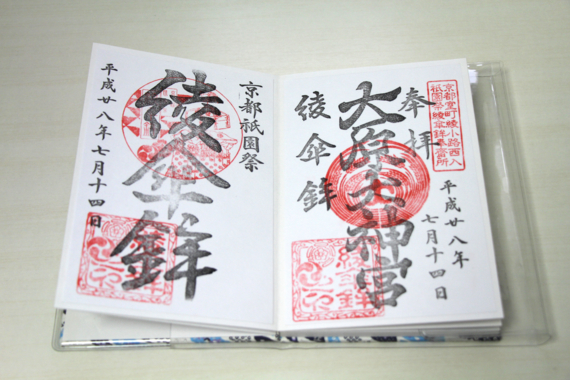 京都室町綾小路西入
奉拝
大原大神宮
綾傘鉾
平成廿八年
七月十四日
京都祇園祭
綾傘鉾
平成廿八年七月十四日